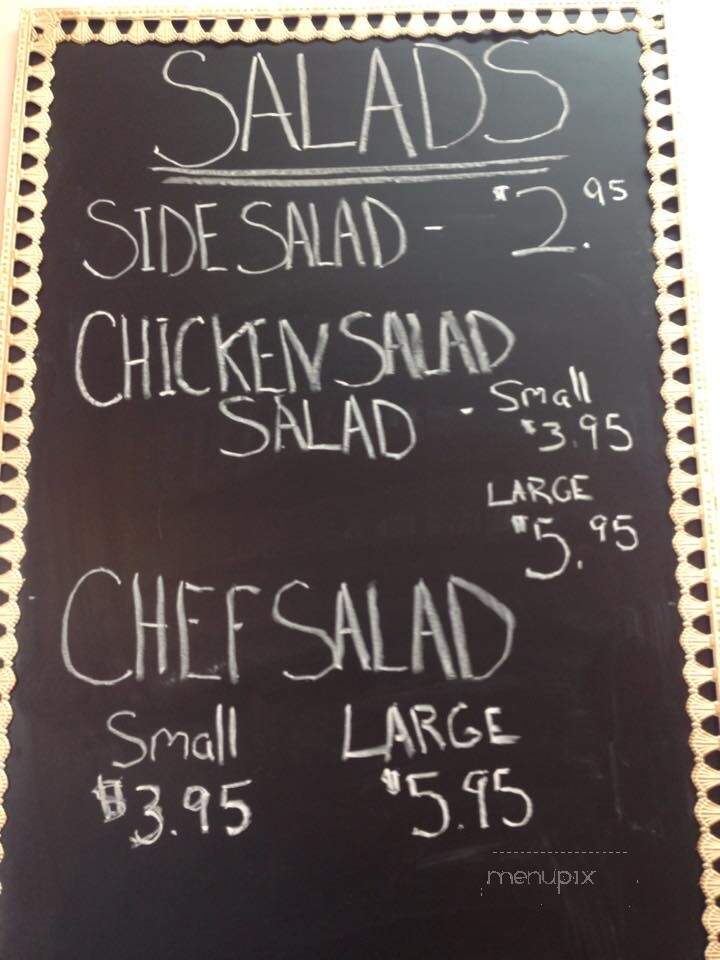 SALADS
SIDE SALAD - $2.95
CHICKEN SALAD
SALAD - Small
$3.95
LARGE
$5.95
CHEF SALAD
Small LARGE
$3.95 $5.95
menupix